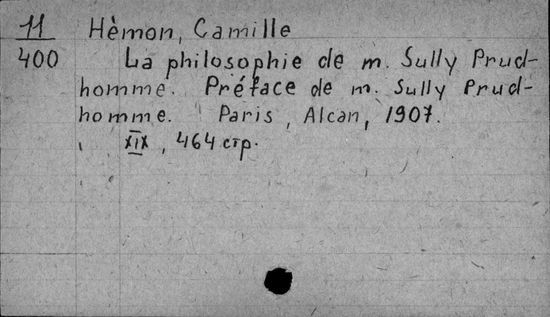 11 Hèmon, Camille
400 La philosophie de m. Sully Prud-
homme. Préface de m. Sully Prud-
homme. Paris, Alcan, 1907.
XIX, 464 стр.